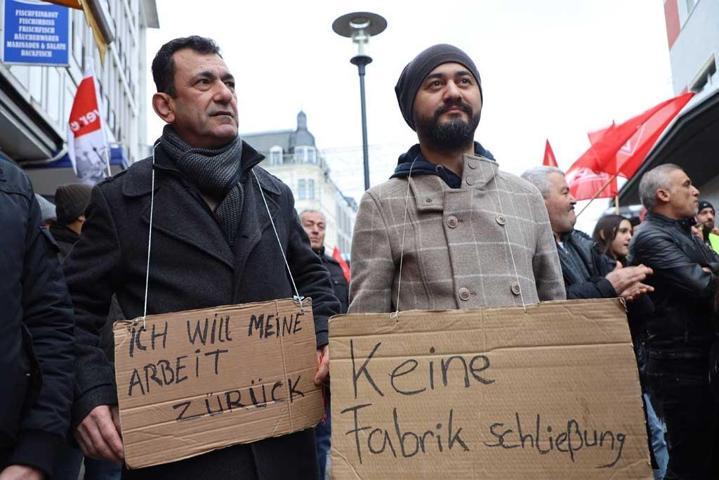 FISCHFEINKOST
FISCHIMBISS
FRISCHFISCH
RÄUCHERWAREN
MARINADEN & SALATE
BACKFISCH
ICH WILL MEINE
ARBEIT
ZURÜCK
Keine
Fabrik schließung